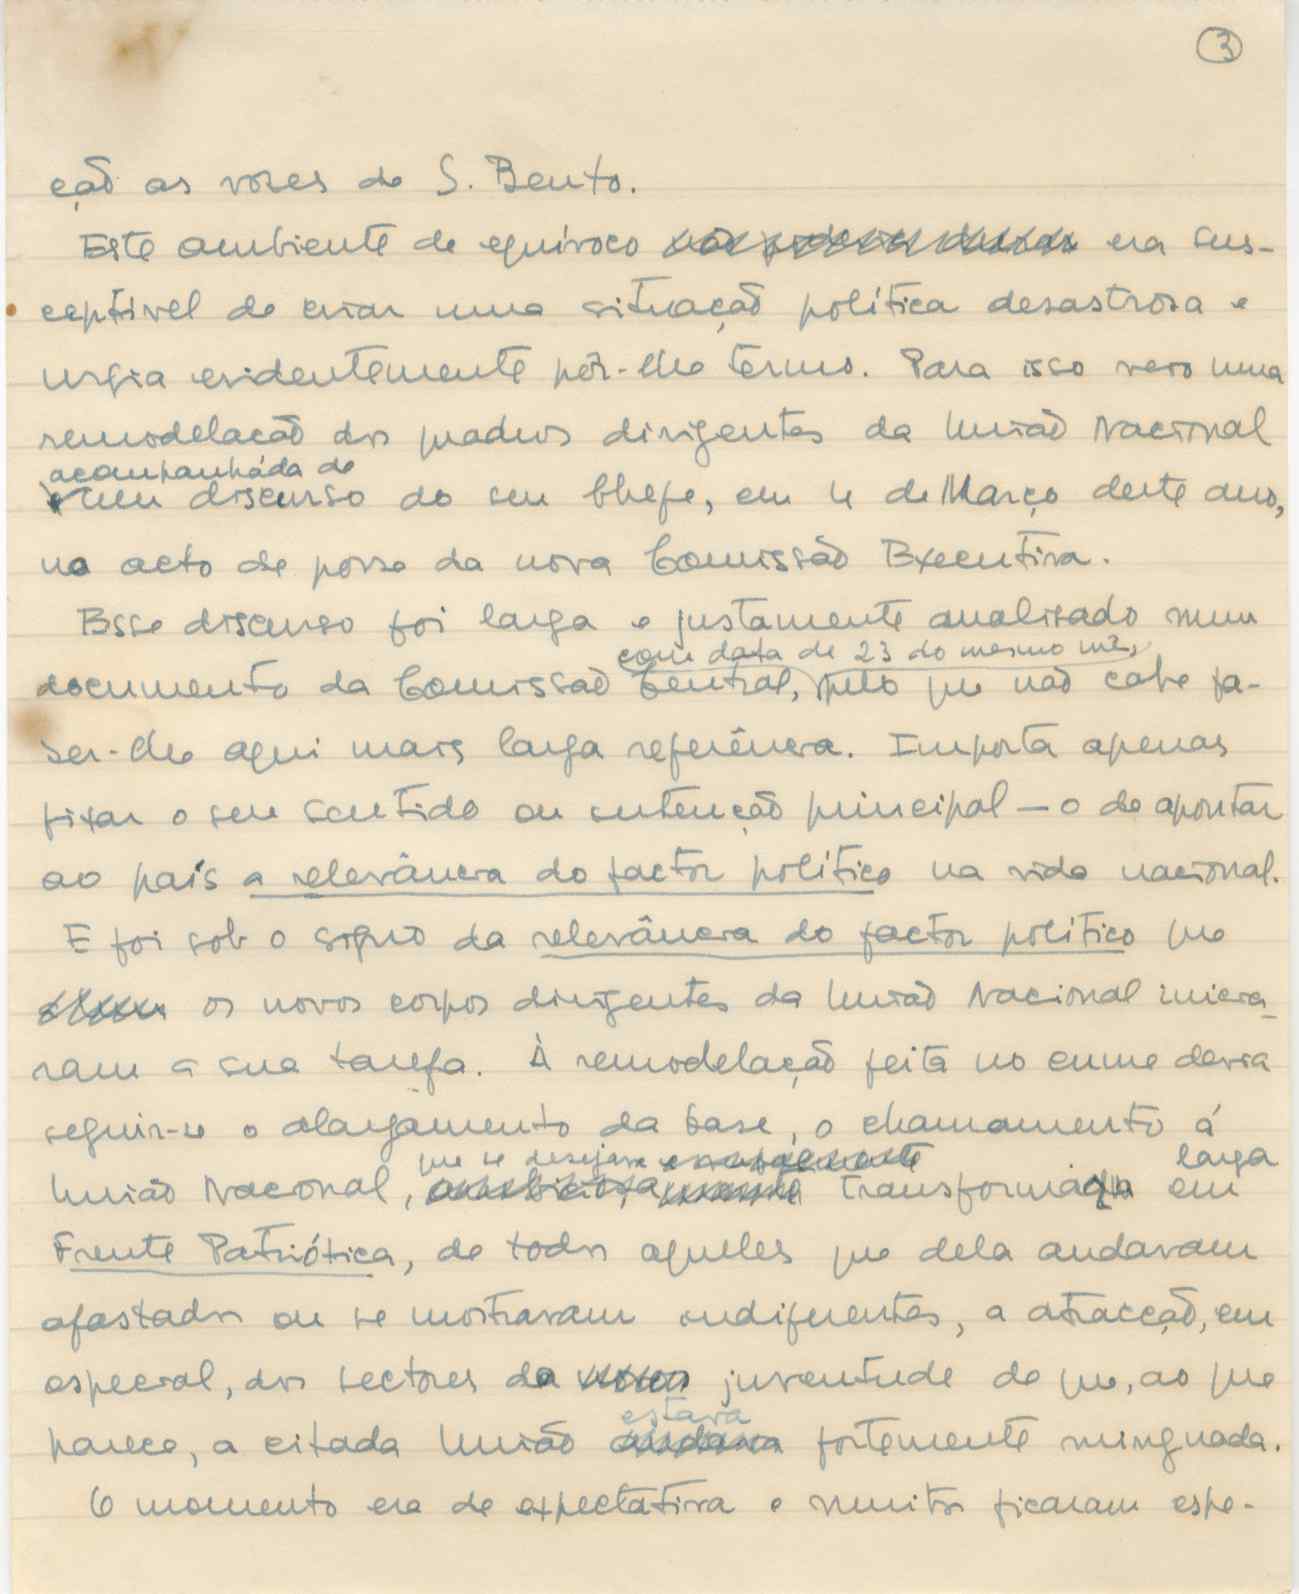 3
ção as vozes de S. Bento.
Este ambiente de equívoco não poderia durar era sus-
ceptível de criar uma situação política desastrosa e
urgia evidentemente pôr-lhe termo. Para isso veio uma
remodelação dos quadros dirigentes da União Nacional
acompanhada de
um discurso do seu Chefe, em 4 de Março deste ano,
no acto de posse da nova Comissão Executiva.
Esse discurso foi larga e justamente analisado num
com data de 23 do mesmo mês,
documento da Comissão Central, pelo que não cabe fa-
zer-lhe aqui mais larga referência. Importa apenas
fixar o seu sentido ou intenção principal — o de apontar
ao país a relevância do factor político na vida nacional.
E foi sob o signo da relevância do factor político que
os novos corpos dirigentes da União Nacional inicia-
ram a sua tarefa. À remodelação feita no cume devia
seguir-se o alargamento da base, o chamamento á
que se desejava larga
União Nacional, transformada em
Frente Patriótica, de todos aqueles que dela andavam
afastados ou se mostravam indiferentes, a atracção, em
especial, dos sectores da juventude de que, ao que
estava
parece, a citada União andava fortemente minguada.
O momento era de expectativa e muitos ficaram espe-